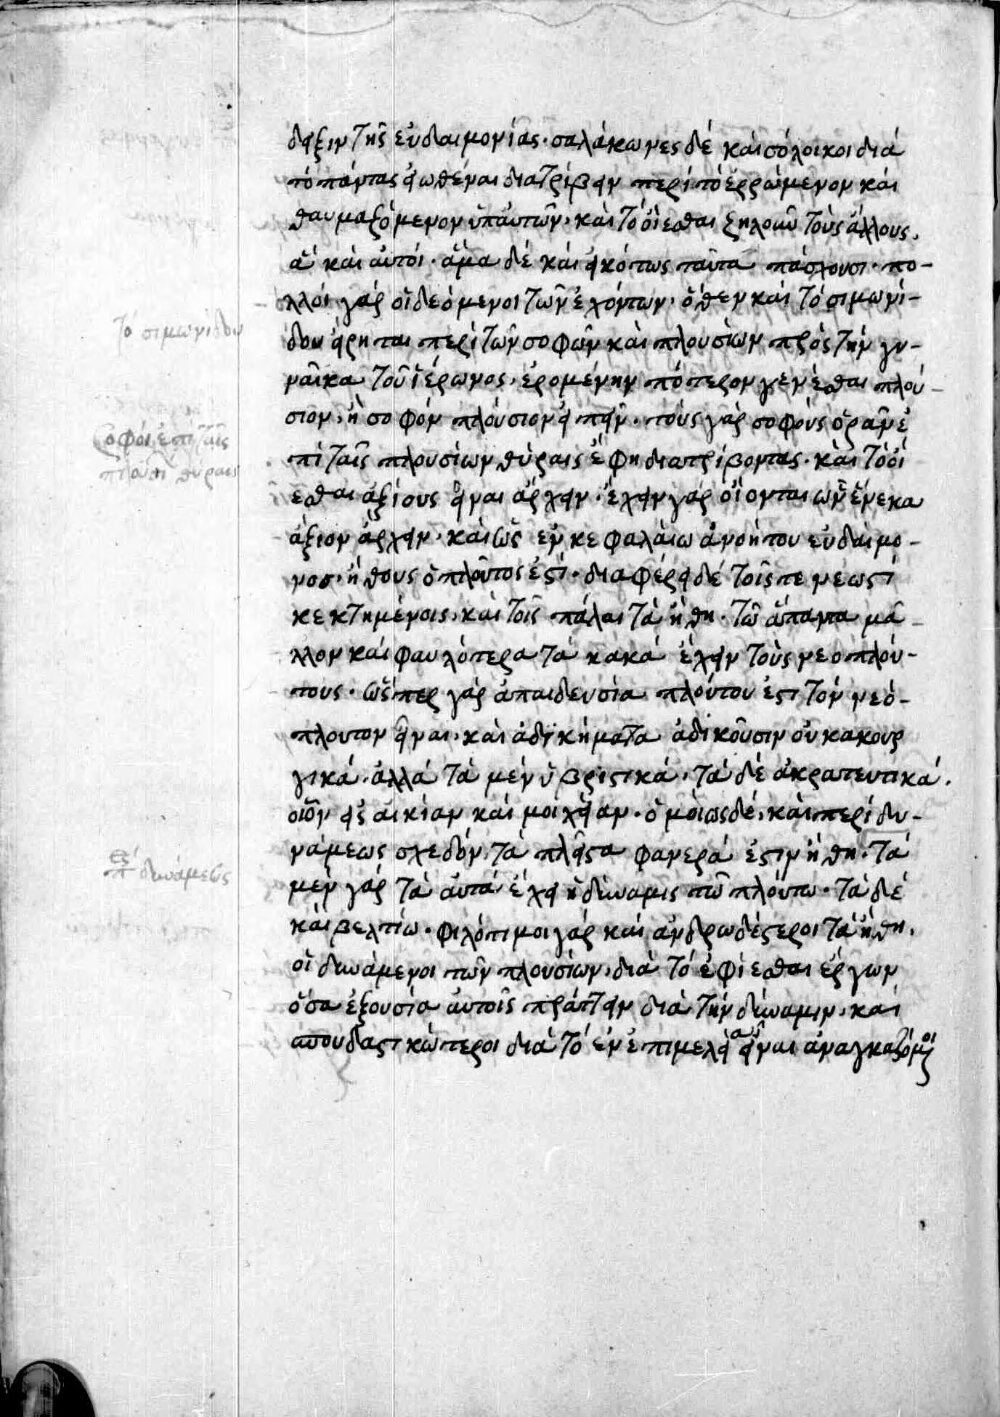 δειξιν τῆς εὐδαιμονίας· σαλάκωνες δὲ καὶ σόλοικοι διὰ
τὸ πάντας εἰωθέναι διατρίβειν περὶ τὸ ἐρρώμενον καὶ
θαυμαζόμενον ὑπ' αὐτῶν· καὶ τὸ οἴεσθαι ζηλοῦν τοὺς ἄλλους,
ἃ καὶ αὐτοί· ἅμα δὲ καὶ εἰκότως ταῦτα πάσχουσι· πο-
λλοὶ γάρ οἱ δεόμενοι τῶν ἐχόντων· ὅθεν καὶ τὸ σιμωνί-
τὸ σιμωνίδου
δου εἴρηται περὶ τῶν σοφῶν καὶ πλουσίων πρὸς τὴν γυ-
ναῖκα τοῦ ἱέρωνος, ἐρομένην πότερον γενέσθαι πλού-
σιον, ἢ σοφόν πλούσιον εἰπεῖν· τοὺς γὰρ σοφοὺς ὁρᾶν ἐ
σοφοὶ ἐπὶ ταῖς
πλουσί θύραις
πὶ ταῖς πλουσίων θύραις ἔφη διατρίβοντας· καὶ τὸ οἴ
εσθαι ἀξίους εἶναι ἄρχειν· ἔχειν γὰρ οἴονται ὧν ἕνεκα
ἄξιον ἄρχειν· καὶ ὡς ἐν κεφαλαίω ἀνοήτου εὐδαίμο-
νος· ἤθους ὁ πλοῦτος ἐστί· διαφέρει δὲ τοῖς τε νεωστὶ
κεκτημένοις, καὶ τοῖς πάλαι τὰ ἤθη· τῶ ἅπαντα μᾶ-
λλον καὶ φαυλότερα τὰ κακὰ ἔχειν τοὺς νεοπλού-
τους· ὥσπερ γὰρ ἀπαιδευσία πλούτου ἐστὶ τὸν νεό-
πλουτον εἶναι· καὶ ἀδικήματα ἀδικοῦσιν οὐ κακουρ
γικά· ἀλλὰ τὰ μὲν ὑβριστικά· τὰ δὲ ἀκρατευτικά·
οἷον εἰς αἰκίαν καὶ μοιχείαν· ὁμοίως δὲ, καὶ περὶ δυ-
νάμεως σχεδὸν τὰ πλεῖστα φανερά ἐστιν ἤθη· τὰ
δυνάμεως
μὲν γὰρ τὰ αὐτὰ ἔχει ἡ δύναμις τῶ πλούτω· τὰ δὲ
καὶ βελτίω· φιλότιμοι γὰρ καὶ ἀνδρωδέστεροι τὰ ἤθη,
οἱ δυνάμενοι τῶν πλουσίων, διὰ τὸ ἐφίεσθαι ἔργων
ὅσα ἐξουσία αὐτοῖς πράττειν διὰ τὴν δύναμιν, καὶ
σπουδαστικώτεροι διὰ τὸ ἐν ἐπιμελεία εἶναι ἀναγκαζόμενοι